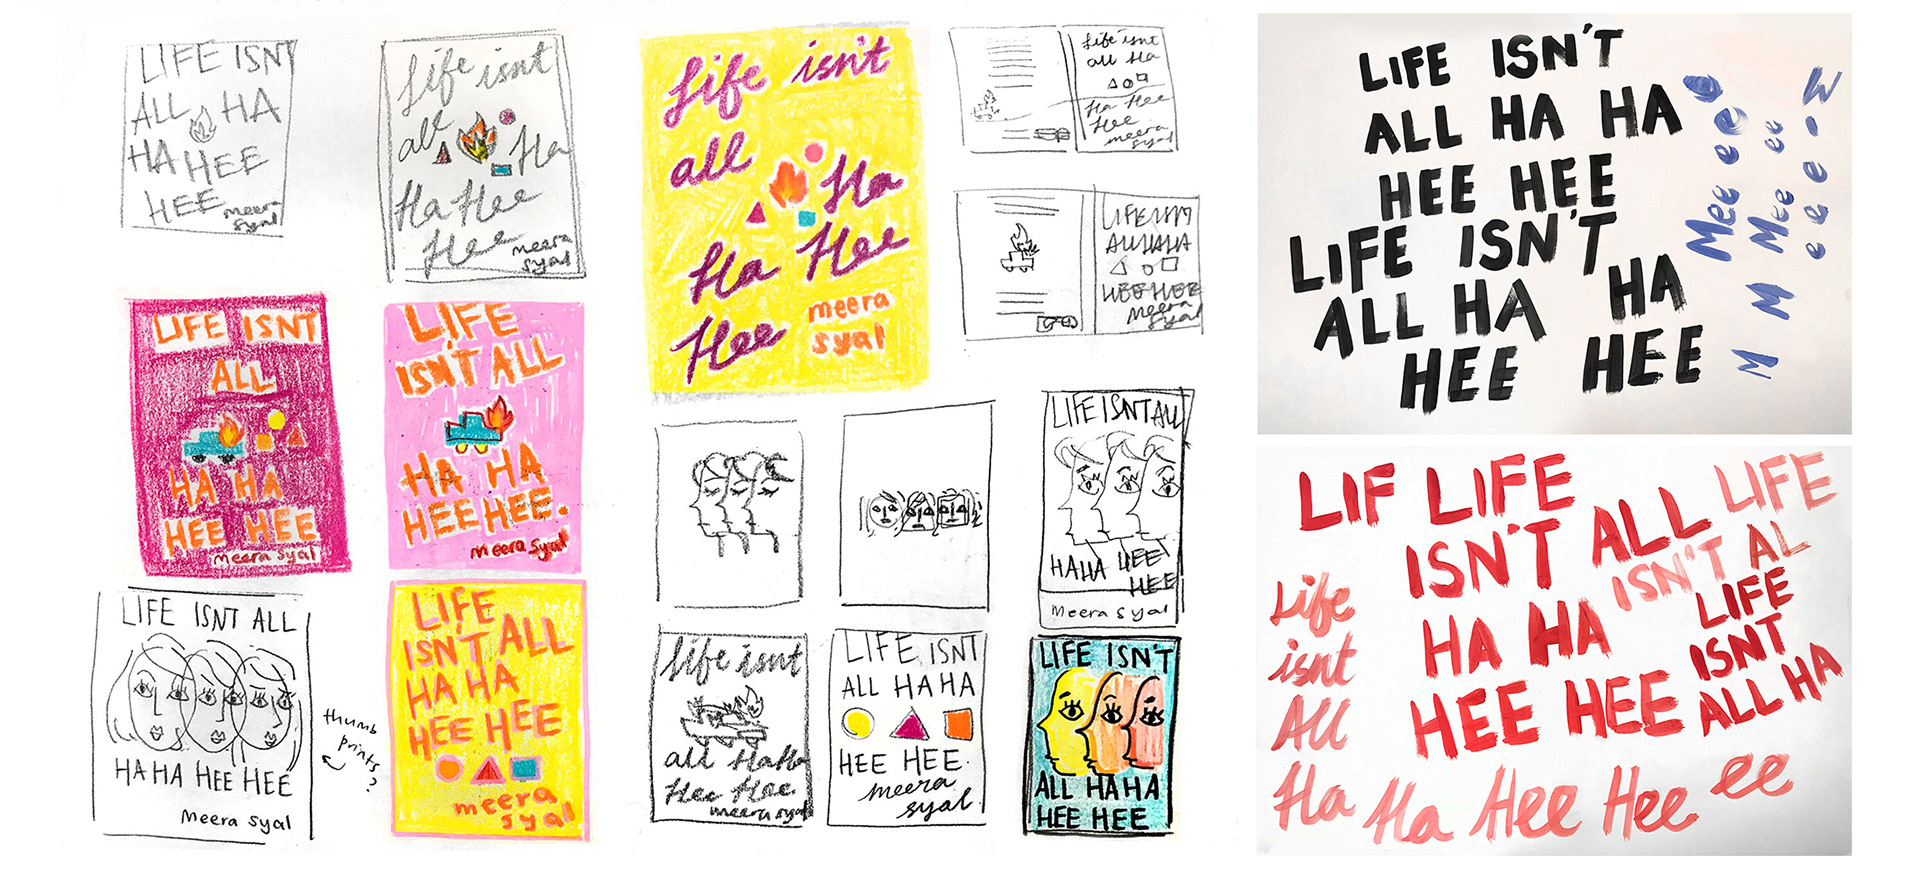 LIFE ISN'T
ALL HA
HA HEE
HEE
meera
syal
Life isn't
all
Ha
Ha Hee
Hee
meera
syal
Life isn't
all
Ha
Ha Hee
Hee
meera
syal
Life isn't
all Ha
Ha Hee
Hee
meera
syal
LIFE ISNT
ALL HAHA
HEE HEE
meera
syal
LIFE ISNT
ALL
HA HA
HEE HEE
meera syal
LIFE
ISN'T ALL
HA HA
HEE HEE.
meera syal
LIFE ISNT ALL
HAHA HEE HEE
meera syal
thumb
prints?
LIFE
ISN'T ALL
HA HA
HEE HEE
meera
syal
LIFE ISNT ALL
HAHA HEE
HEE
meera syal
life isnt
all HaHa
Hee Hee
meera syal
LIFE ISNT
ALL HAHA
HEE HEE.
meera
syal
LIFE ISN'T
ALL HAHA
HEE HEE
LIFE ISN'T
ALL HA HA
HEE HEE
LIFE ISN'T
ALL HA HA
HEE HEE
Mee ee
M Mee ee
M M
eee-M
LIF LIFE
ISN'T ALL
HA HA
HEE HEE
LIFE
ISN'T AL
LIFE
ISNT
ALL HA
Life
isnt
All
Ha Ha Hee Hee ee